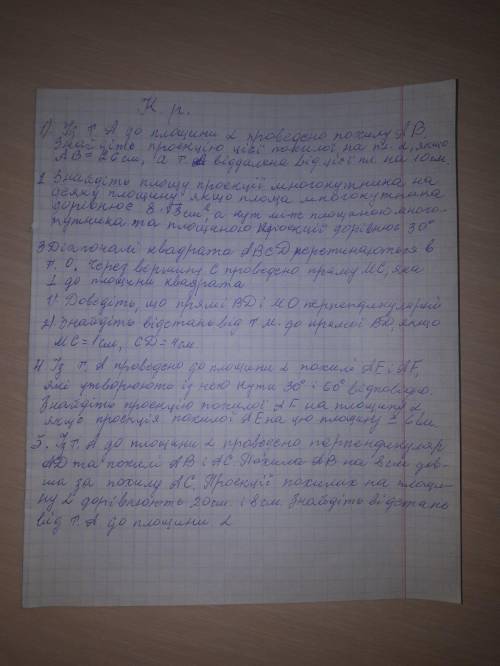 К. р.
1) Із т. А до площини α проведено похилу АВ.
Знайдіть проекцію цієї похилої на пл. α, якщо
АВ = 26 см, а т. А віддалена від цієї пл. на 10 см.
2 Знайдіть площу проекції многокутника на
деяку площину, якщо площа многокутника
дорівнює 8√3 см², а кут між площиною много-
кутника та площиною проекції дорівнює 30°
3 Діагоналі квадрата ABCD перетинаються в
т. О. Через вершину С проведено пряму МС, яка
⊥ до площини квадрата
1) Доведіть, що прямі BD і МО перпендикулярні
2) Знайдіть відстань від т. М до прямої BD, якщо
МС = 1 см, CD = 4 см.
4 Із т. А проведено до площини α похилі АЕ і AF,
які утворюють із нею кути 30° і 60° відповідно.
Знайдіть проекцію похилої AF на площину α
якщо проекція похилої АЕ на цю площину = 6 см
5. Із т. А до площини α проведено перпендикуляр
AD та похилі АВ і АС. Похила АВ на 8 см дов-
ша за похилу АС. Проекції похилих на площи-
ну α дорівнюють 20 см. і 8 см. Знайдіть відстань
від т. А до площини α